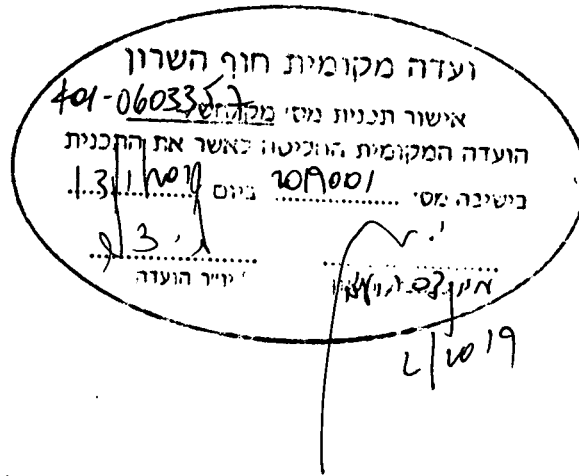 ועדה מקומית חוף השרון
401-0603357
אישור תכנית מס׳
הועדה המקומית החליטה לאשר את התכנית
בישיבה מס׳ 2019001 ביום 13/1/2019
יו״ר הועדה
2019